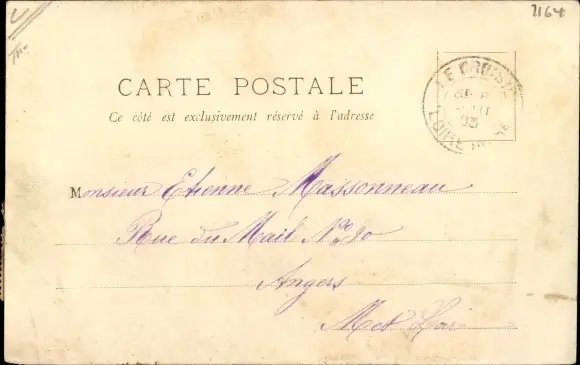 2164
CARTE POSTALE
Ce côté est exclusivement réservé à l'adresse
LE CROISIC
03
LOIRE INFRE
Monsieur Etienne Massonneau
Rue du Mail No
Angers
M et Loire